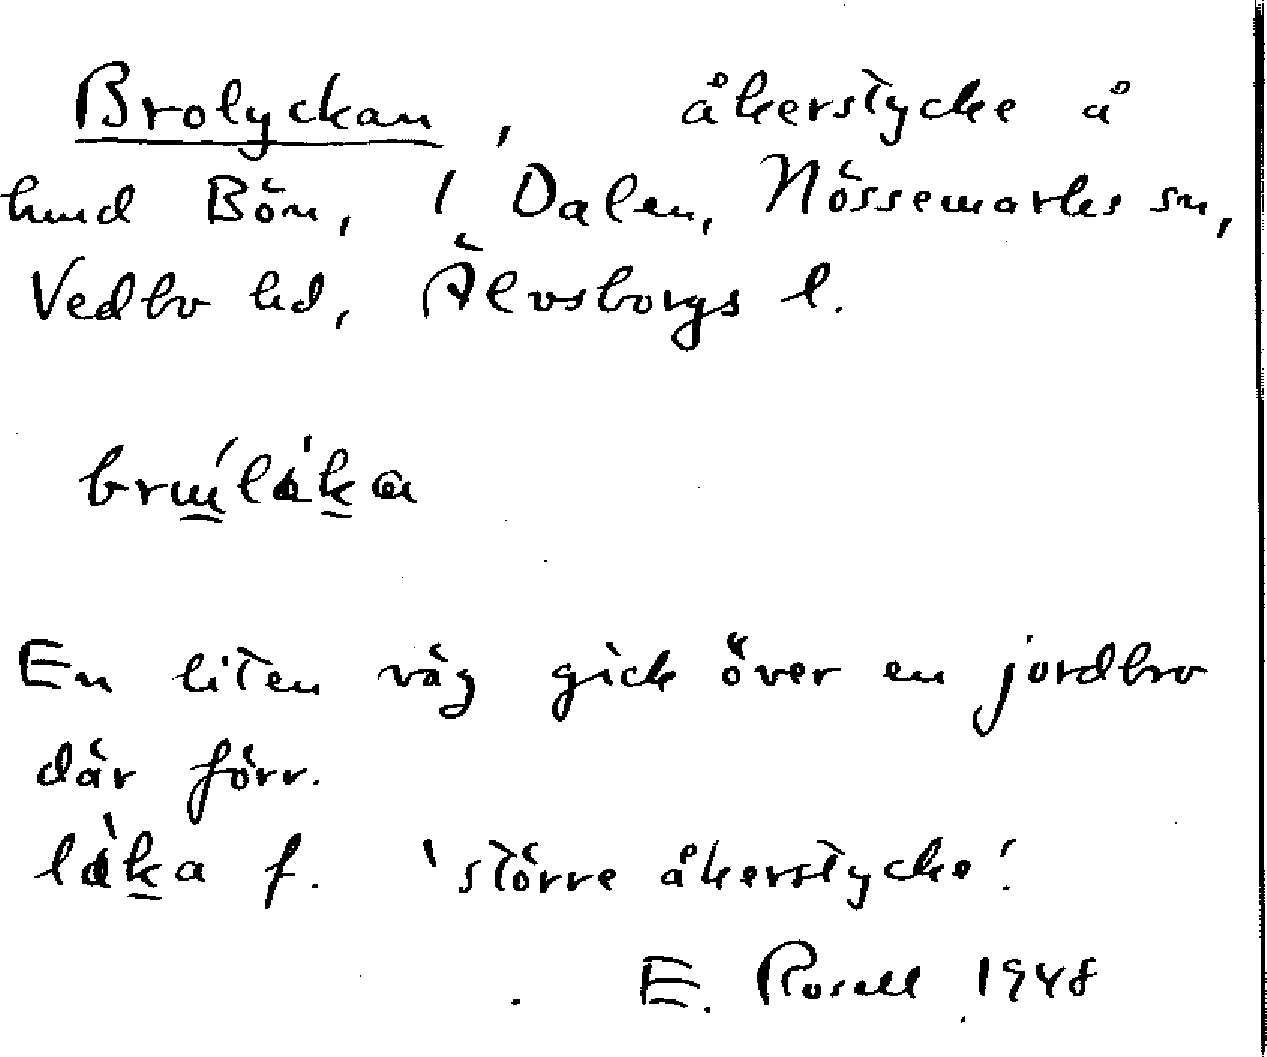 Brolyckan, åkerstycke å
hmd Bön, 1 Dalen, Nössemarks sn,
Vedbo hd, Älvsborgs l.
En liten väg gick över en jordbro
där förr.
f. 'större åkerstycke'.
E. Rosell 1948